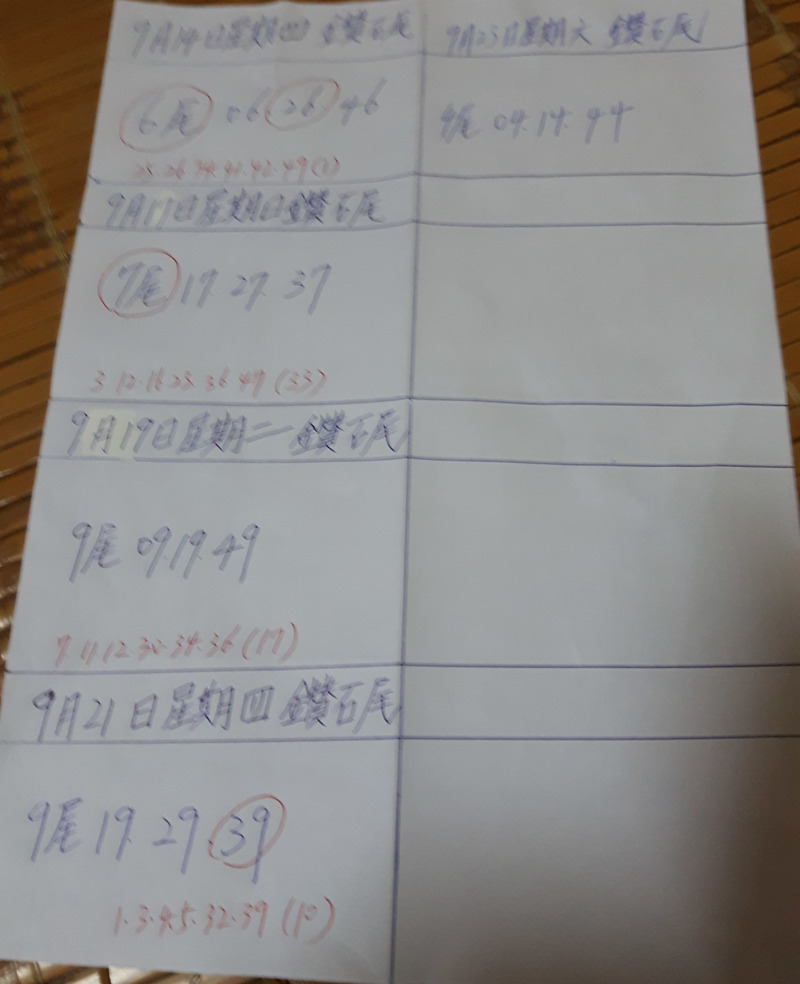 9月14日星期四 鑽石尾
6尾 06 26 46
25.26.34.41.42.49(1)
9月17日星期日鑽石尾
7尾 17 27 37
3 12.16 23.36 49 (33)
9月19日星期二 鑽石尾
9尾 09.19.49
7.11.12 30.34.36 (17)
9月21日星期四 鑽石尾
9尾 19 29.39
1.3.4.5.32.39 (10)
9月23日星期六 鑽石尾
4尾 04.14.44